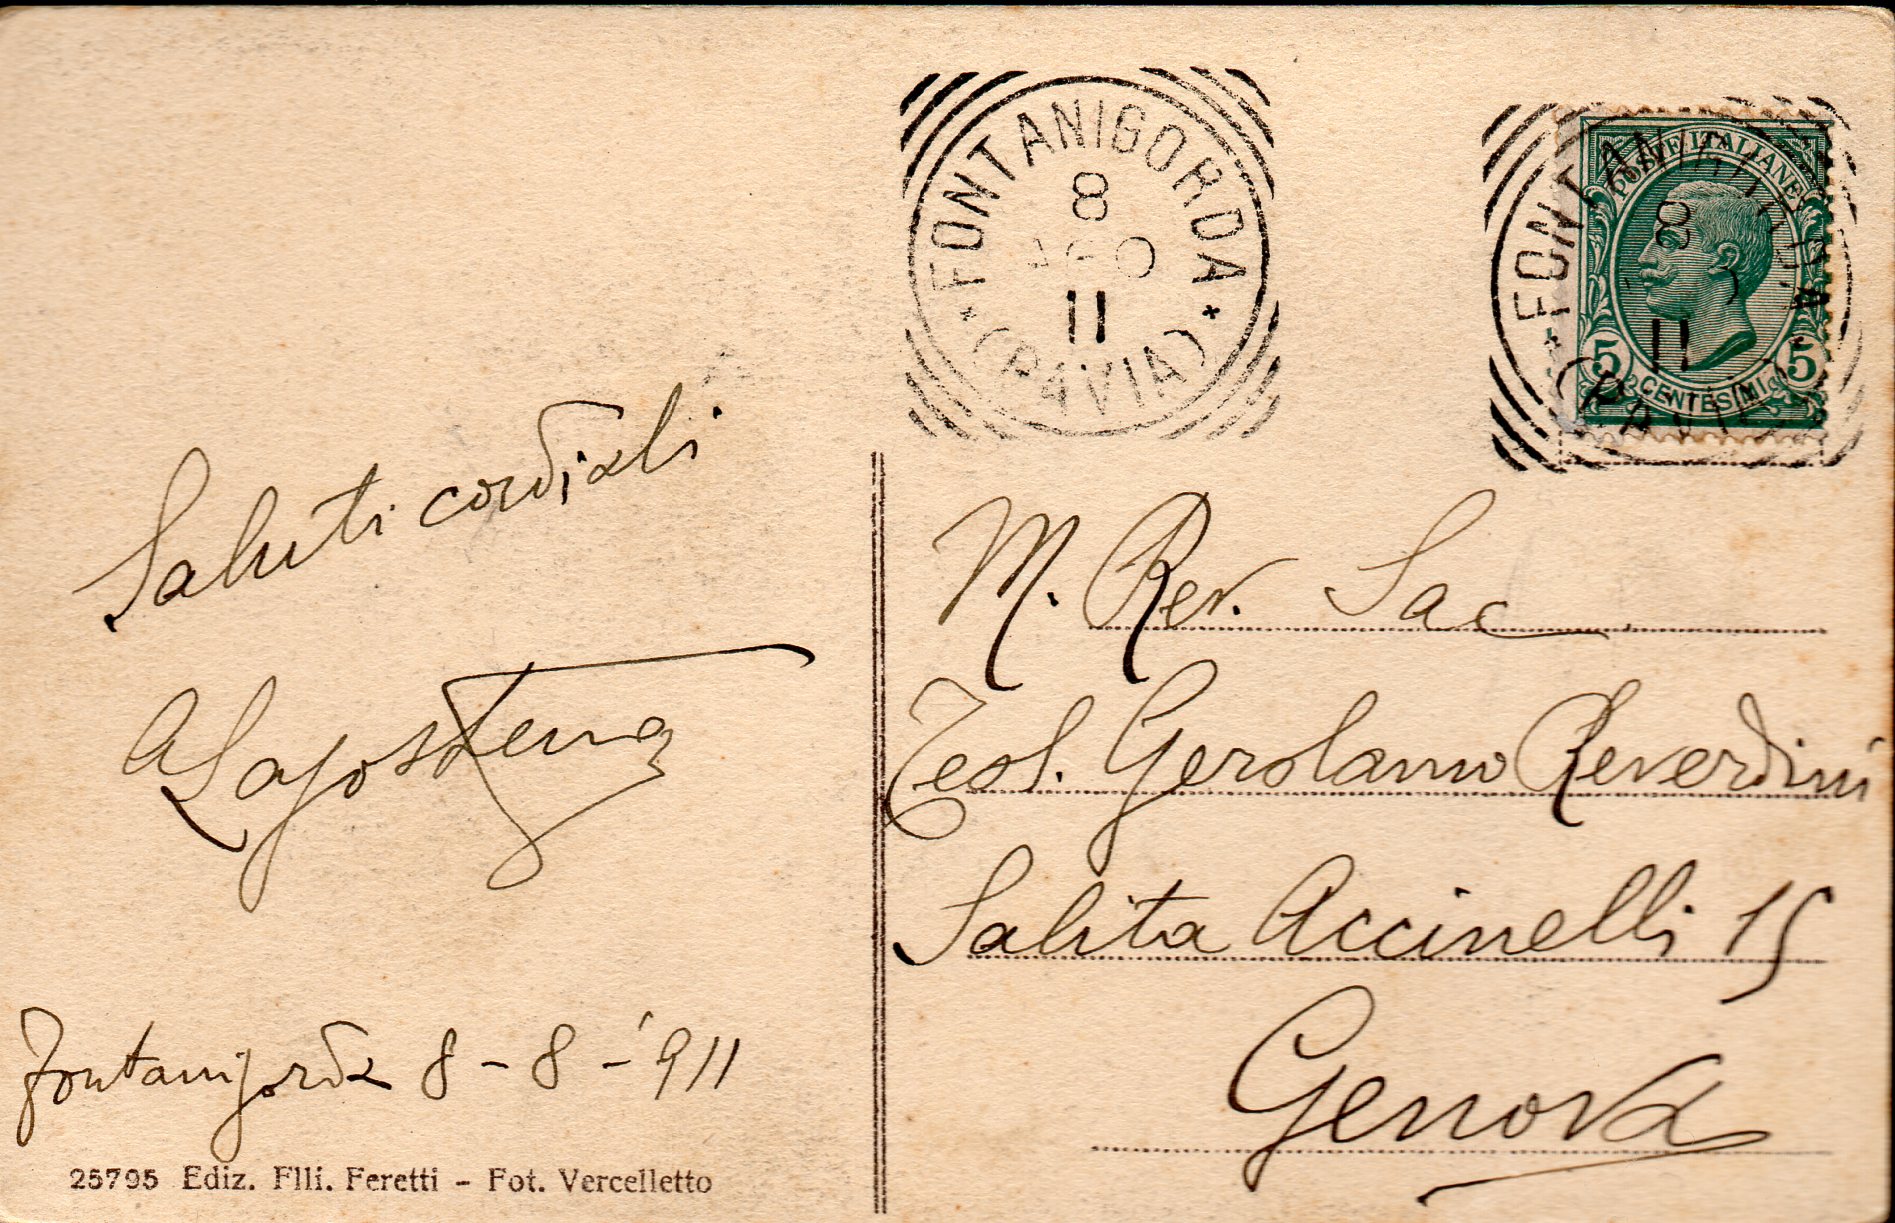 FONTANIGORDA
8
AGO
11
(PAVIA)
POSTE ITALIANE
5 CENTESIMI 5
FONTANIGORDA
8
11
(PAVIA)
Saluti cordiali
Fontanigorda 8-8-'911
25795 Ediz. Flli. Feretti - Fot. Vercelletto
M. Rev. Sac
Teol. Gerolamo Reverdini
Salita Accinelli 15
Genova